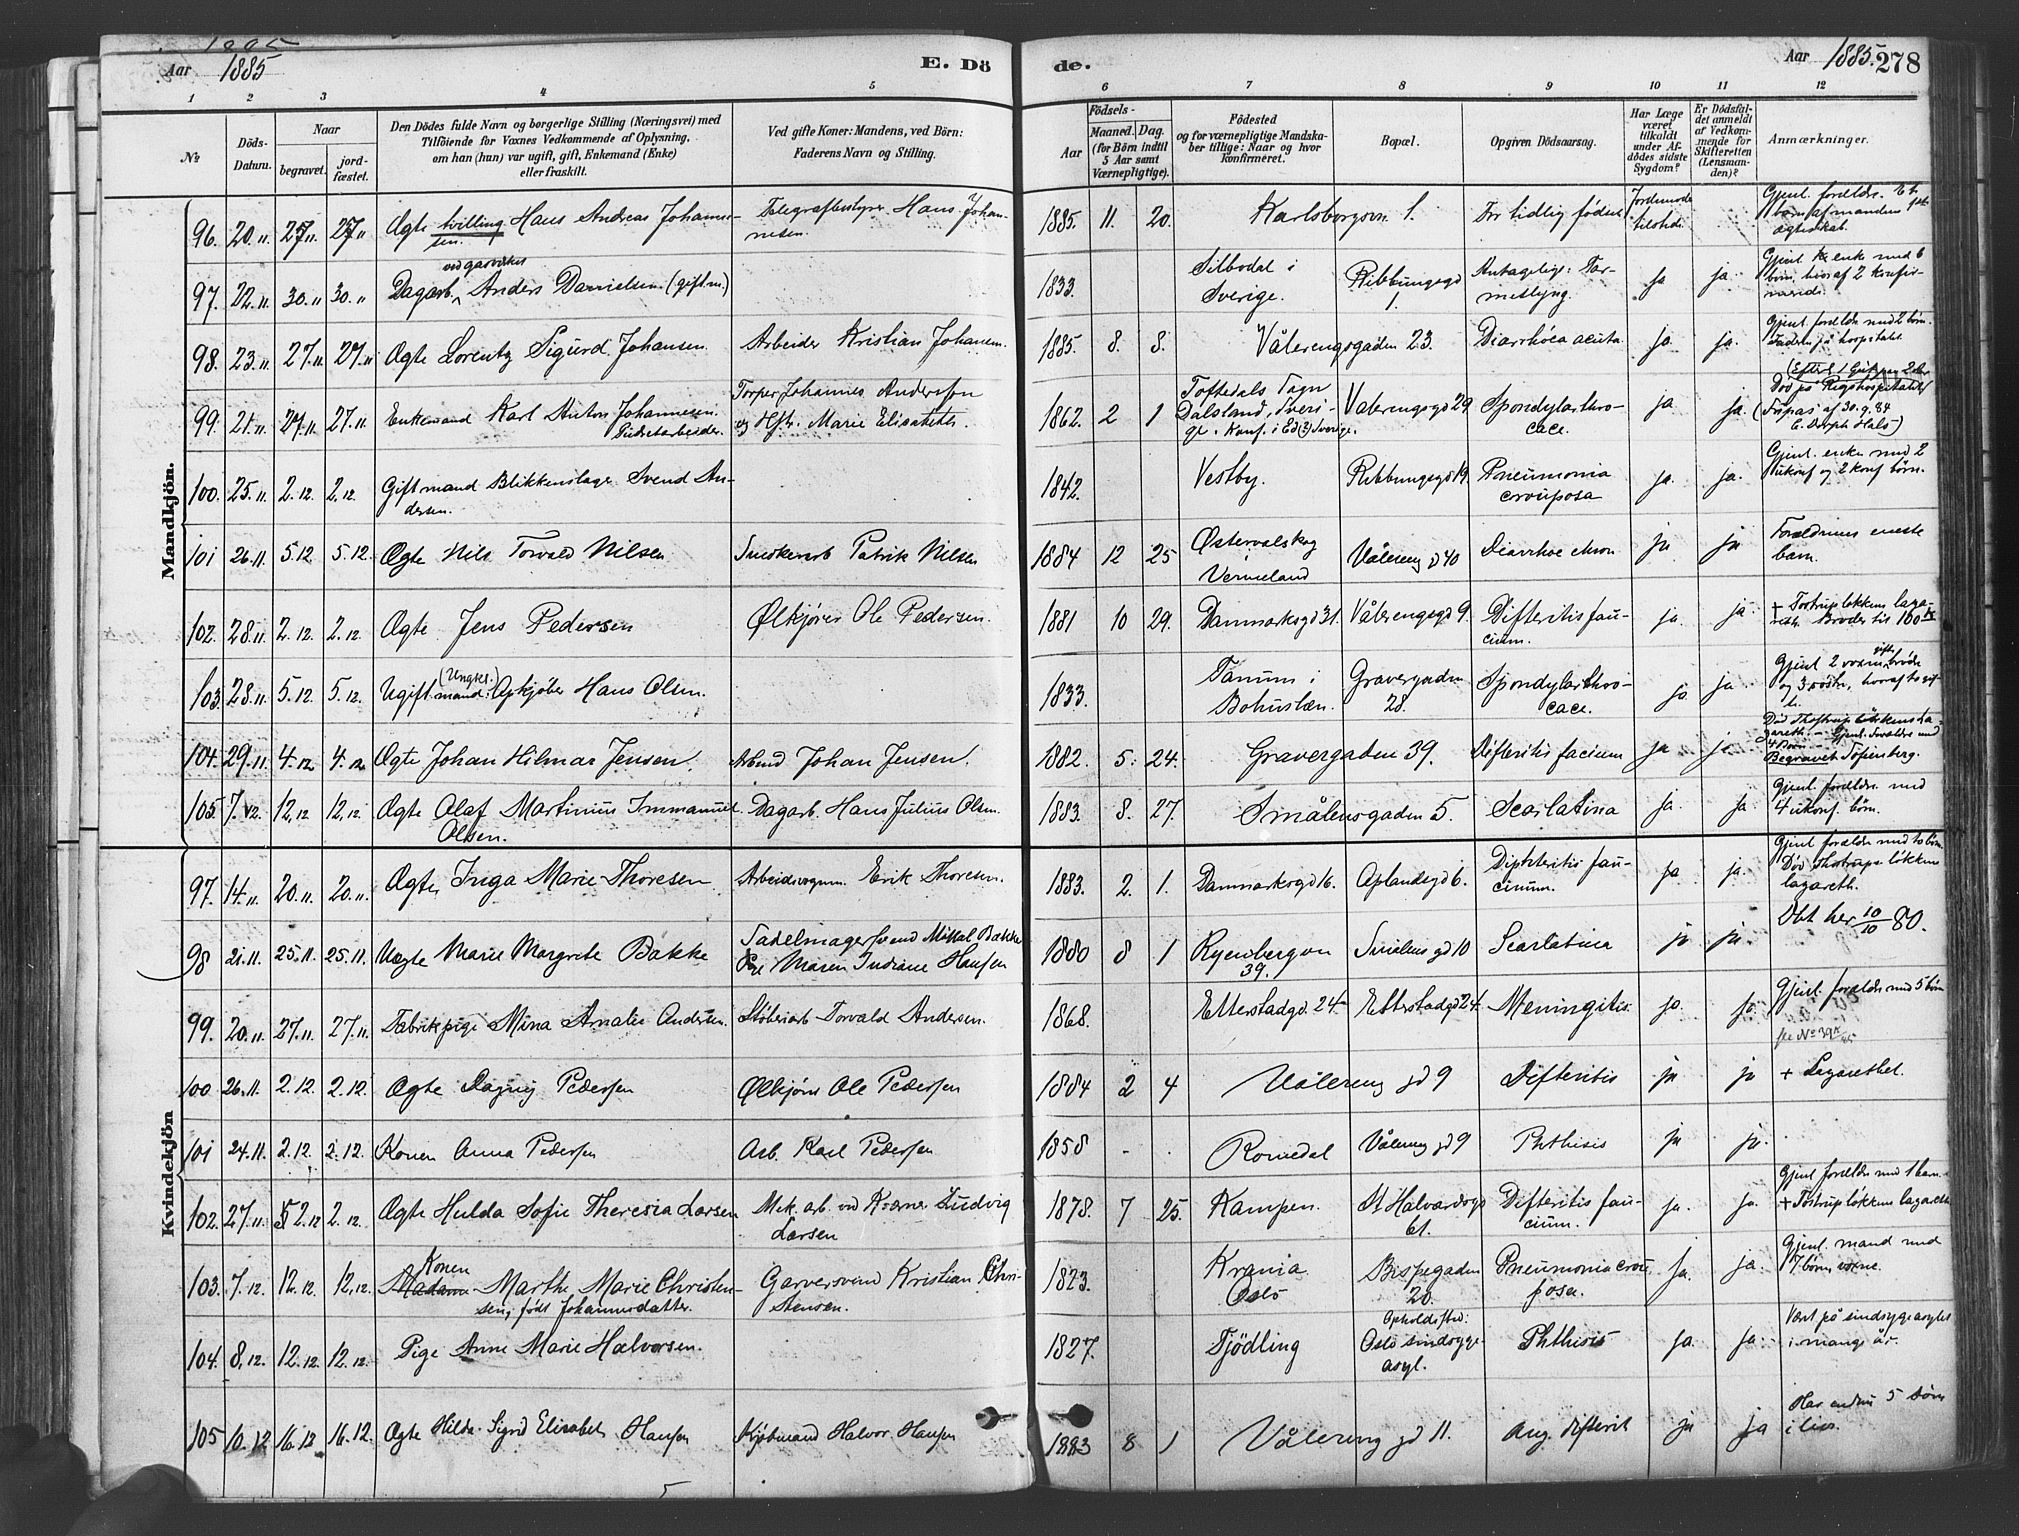 Aar 1885
E. Dö
de.
Aar 1885. 278
1 2 3 4 5 6 7 8 9 10 11 12
№
Döds-Datum.
Naar
begravet.
jord-fæstet.
Den Dödes fulde Navn og borgerlige Stilling (Næringsvei) med
Tilföiende for Voxnes Vedkommende af Oplysning,
om han (hun) var ugift, gift, Enkemand (Enke)
eller fraskilt.
Ved gifte Koner: Mandens, ved Börn:
Faderens Navn og Stilling.
Födsels-
Aar
Maaned. Dag.
(for Börn indtil
5 Aar samt
Værnepligtige).
Födested
og for værnepligtige Mandska-
ber tillige: Naar og hvor
konfirmeret.
Bopæl.
Opgiven Dödsaarsag.
Har Læge
været
tilkaldt
under Af-
dödes sidste
Sygdom?
Er Dödsfal-
det anmeldt
af Vedkom-
mende for
Skifteretten
(Lensman-
den)?
Anmærkninger.
Mandkjön.
96. 20.11. 27.11. 27.11 Ægte tvilling Hans Andreas Johannes-
sen. Telegrafbestyrer Hans Johan-
nesen. 1885. 11. 20. Karlsborgvn 1. For tidlig födt Jordemoder
tilstede.
97. 22.11. 30.11 30.11 Dagarb. ved gasverket Anders Danielsen (gift m.) 1833. Silbodal i
Sverige. Ribbungsgd
1. Antagelig: Tar-
meslyng. ja ja.
98. 23.11. 27.11 27.11 Ægte Lorentz Sigurd Johansen. Arbeider Kristian Johansen. 1885. 8. 8. Vålerengsgaden 23. Diarrhöea acuta. ja. ja.
99. 21.11. 27.11. 27.11. Enkemand Karl Anton Johannesen.
Torper Johannes Andersson
og Hstr. Marie Elisabeth. 1862. 2 1 Toftedals Sogn
Dalsland, Sveri-
ge. Konf. i Ed (?) Sverige. Valerengsgd 29. Spondylarthro-
cace. ja ja.
Död på Rigshospitalet
100. 25.11. 2.12. 2.12. Gift mand Blikkenslager Svend An-
dersen. 1842. Vestby. Ribbungsgd 19. Pneumonia
crouposa ja. ja. Gjenl. enke med 2
ukonf og 2 konf börn.
101 26.11. 5.12. 5.12. Ægte Nils Torvald Nilsen Snedkerarb Patrik Nilsen 1884 12 25 Østervalskog
i
Vermeland Vålereng gd 40 Diarrhoe chron ja ja Forældrenes eneste
barn.
102. 28.11. 2.12. 2.12. Ægte Jens Pedersen Ølkjører Ole Pedersen. 1881 10 29. Danmarksgd 31. Vålerengsgd 9. Difteritis fau-
cium. ja. ja + Tostrupløkkens laza-
reth. Broder til 100
103. 28.11. 5.12. 5.12. Ugift mand. (Ungkl.) Opkjøber Hans Olsen. 1833. Tanum i
Bohuslæn. Gravergaden
28. Spondylarthro-
cace. ja. ja.
104. 29.11. 4.12 4.12 Ægte Johan Hilmar Jensen. Arbmd Johan Jensen. 1882. 5. 24. Gravergaden 39. Difteritis facium ja ja
Begravet Sofienberg.
105. 7.12. 12.12 12.12. Ægte Olaf Martinius Immanuel
Olsen. Dagarb. Hans Julius Olsen. 1883. 8. 27. Smålensgaden 5. Scarlatina ja. ja Gjenl. forældre med
4 ukonf. börn.
Kvindekjön
97. 14.11. 20.11. 20.11. Ægte Inga Marie Thoresen Arbeidsvognm. Erik Thoresen. 1883. 2. 1. Danmarksgd 16. Oplandsgd 6. Diphteritis fau-
cium. ja ja. Gjenl forældre med to börn
Död Thostrups løkkens
lazareth.
98 21.11. 25.11. 25.11. Uægte Marie Margrete Bakke Sadelmagersvend Mikal Bakke
Pge Maren Indiane Hansen 1880 8 1 Ryenbergvn
39. Smålens gd 10 Scarlatina ja ja Dbt her 10/10 80.
99. 20.11. 27.11. 27.11. Fabrikpige Mina Amalie Andersen. Støberiarb Torvald Andersen. 1868. Etterstadgd. 24 Etterstadgd 24. Meningitis. ja. ja. Gjenl. forældre med 5 börn
100 26.11. 2.12. 2.12. Ægte Dagny Pedersen Ølkjører Ole Pedersen 1884 2 4 Vålereng gd 9 Difteritis ja ja + Lazarethet.
101 24.11. 2.12. 2.12. Konen Anna Pedersen Arb. Karl Pedersen 1858 - . Romedal Vålereng gd 9 Phthisis ja ja.
102. 27.11. 2.12 2.12. Ægte Hulda Sofie Theresia Larsen Mek. arb. ved Kværner Ludvig
Larsen 1878. 7 25. Kampen. St Halvardsgd
61. Difteritis fau-
cium. ja. ja. Gjenl forældre med 1 barn.
+ Tostrupløkkens lazareth
103. 7.12. 12.12. 12.12. Madam Konen Marthe Marie Christen-
sen, född Johannesdatter. Garversvend Kristian Chri-
stensen. 1823. Krania
Oslo Bispegaden
20. Pneumonia crou-
posa. Ja. ja. Gjenl. mand med
7 börn voxne.
104. 8.12. 12.12 12.12. Pige Anne Marie Halvorsen. 1827. Fjödling Opholdssted:
Oslo sindsyge-
asyl. Phthisis ja. ja. Vært på sindsygeasylet
i mange år.
105 10.12 16.12 16.12. Ægte Hilda Sigrid Elisabeth Hansen Kjøbmand Halvor Hansen 1883 8 1 Vålereng gd 11. Ang. difterit ja ja Har endnu 5 börn
i live.